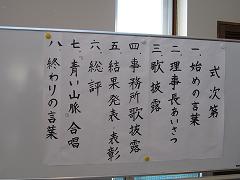 式次第
一、始めの言葉
二、理事長あいさつ
三、歌披露
四、事務所歌披露
五、結果発表 表彰
六、総評
七、青い山脈 合唱
八、終わりの言葉